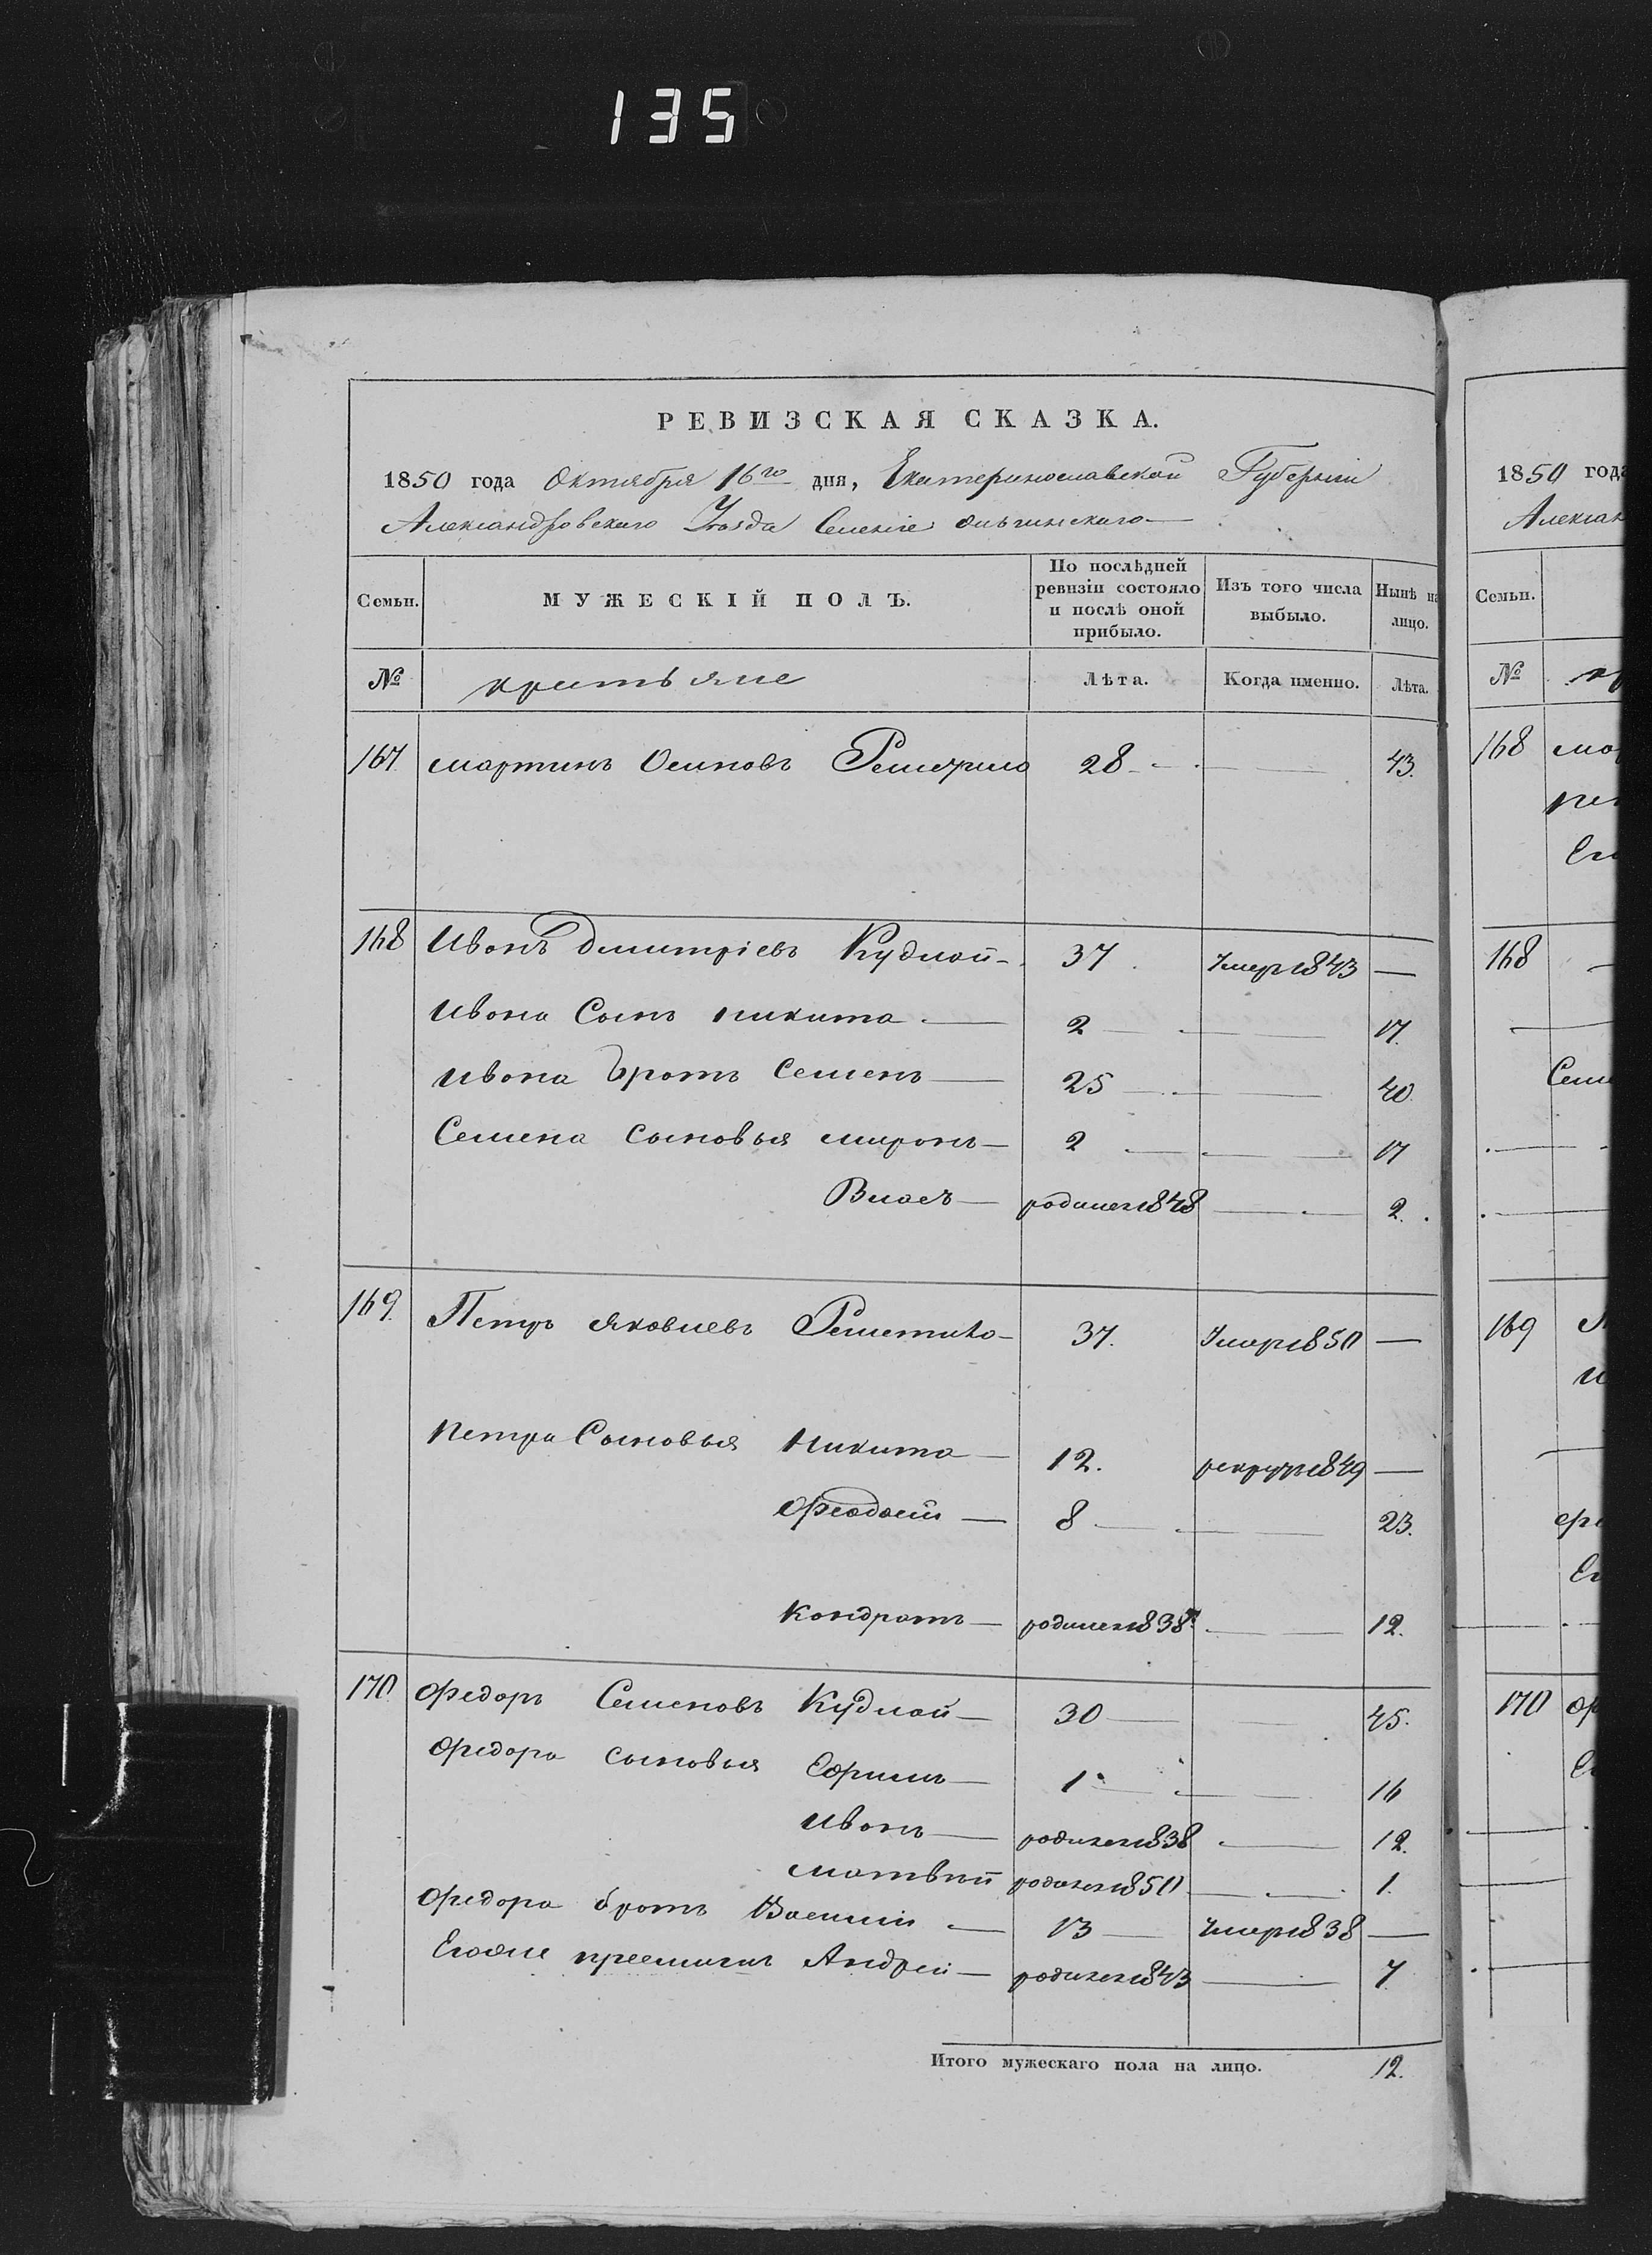 135
РЕВИЗСКАЯ СКАЗКА.
1850 года Октября 16го дня, Екатеринославской Губерніи
Александровского Уезда Селеніе
Семьи. МУЖЕСКІЙ ПОЛЪ. По послѣдней ревизіи состояло и послѣ оной прибыло. Изъ того числа выбыло. Нынѣ на лицо.
№ Лѣта. Когда именно. Лѣта.
167. мартинъ Осиповъ 28 — — 43.
168 Иванъ дмитріевъ Кудлай — 37. Умеръ 1843 —
Ивана Сынъ никита — 2 — — 17.
Ивана братъ Семенъ — 25 — — 40.
Семена сыновья миронъ — 2 — — 17
Власъ — родился 1848 — — 2.
169. Петръ Яковлевъ 37. Умеръ 1850 —
Петра Сыновья Никита — 12. рекрутъ 1849 —
Феодосій — 8 — — 23.
Кондратъ — родился 1838. — — 12.
170. Федоръ Семеновъ Кудлай — 30 — — 45.
Федора сыновья Ефримъ — 1 — — 16
Иванъ — родился 1838 — 12.
матвѣй родился 1850 — — 1.
Федора братъ Василій — 13 — Умеръ 1838 —
Андрей — родился 1843 — 7.
Итого мужескаго пола на лицо. 12.
1850 года
168
168
169
170